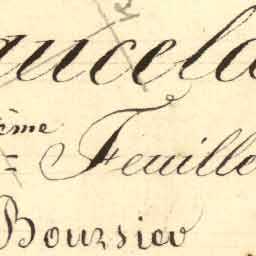 aucela
ème
= Feuille
Boursier